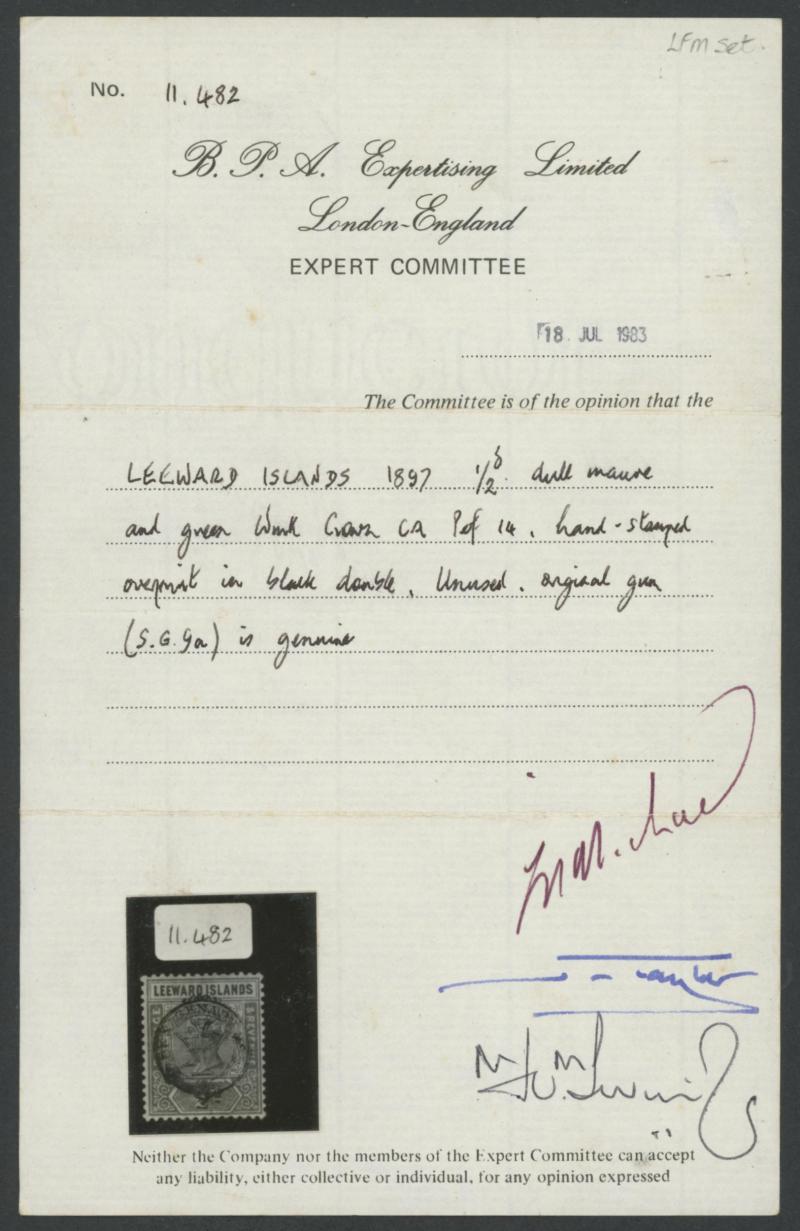 LFM set.
No. 11.482
B. P. A. Expertising Limited
London-England
EXPERT COMMITTEE
18 JUL 1983
The Committee is of the opinion that the
LEEWARD ISLANDS 1897 1/2d. dull mauve
and green Wmk Crown CA Perf 14, hand-stamped
overprint in black double, Unused, original gum
(S.G. 9a) is genuine
11.482
LEEWARD ISLANDS
Neither the Company nor the members of the Expert Committee can accept
any liability, either collective or individual, for any opinion expressed